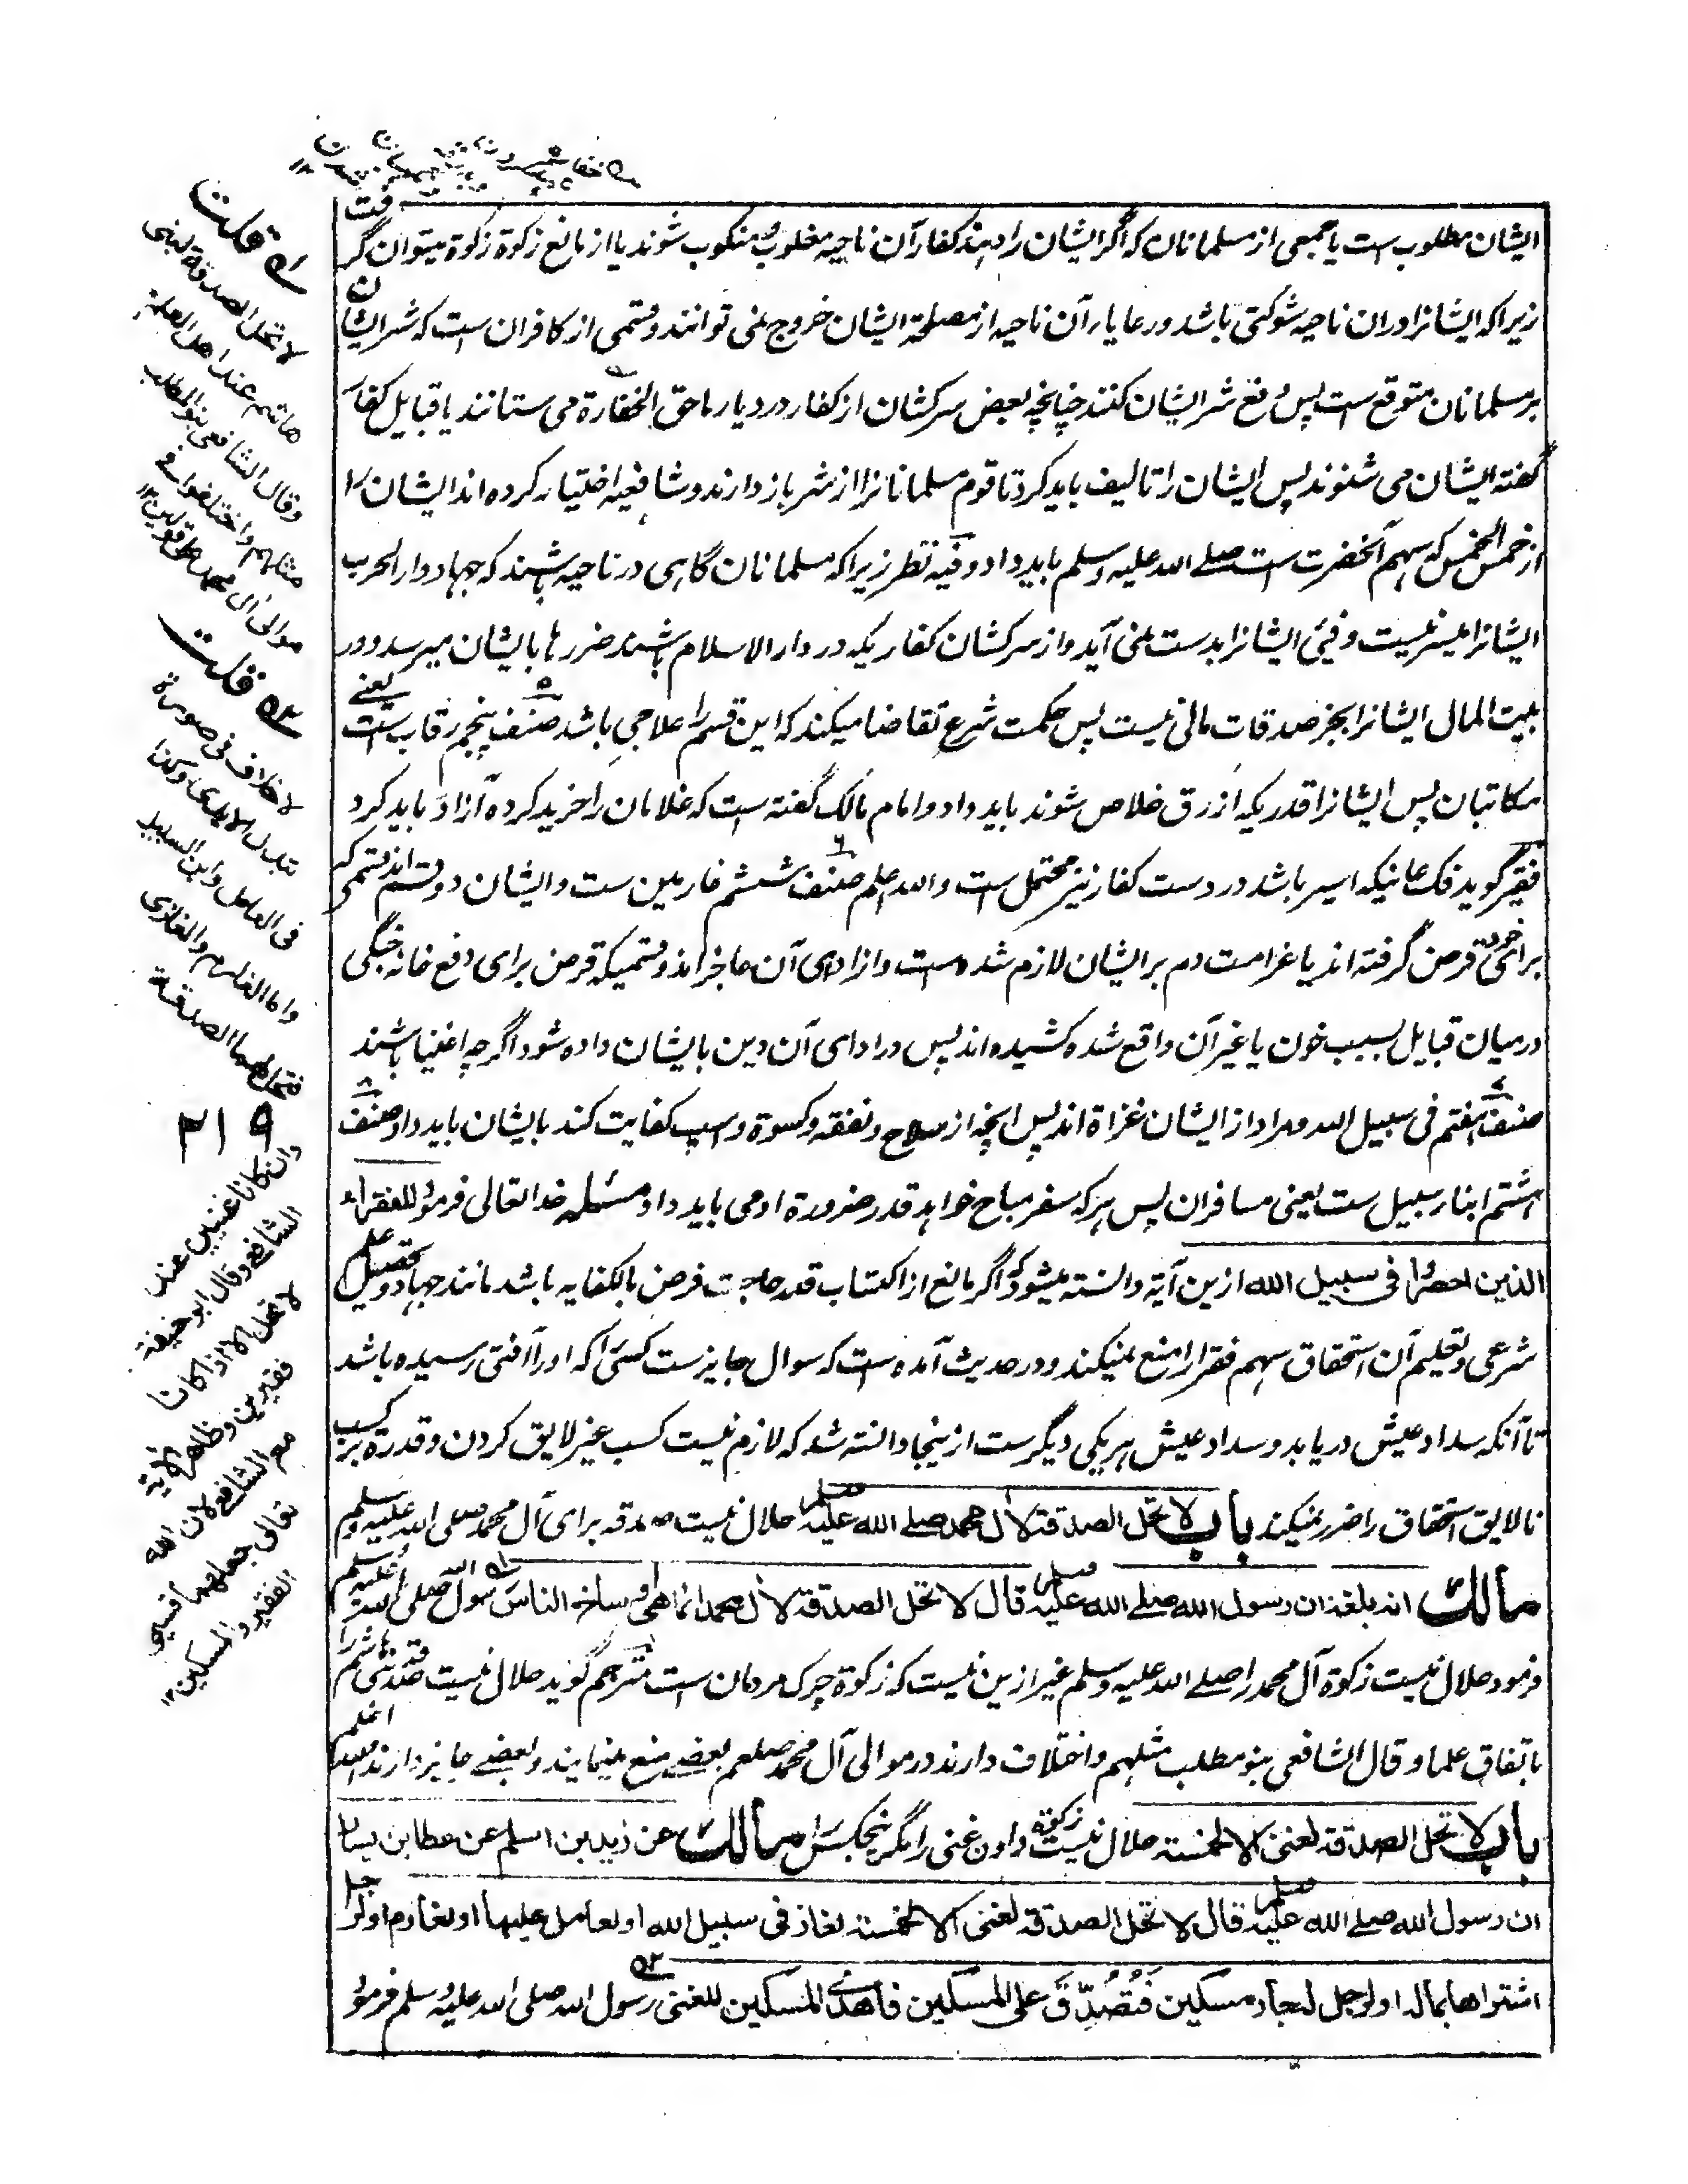 ایشان مطلوب است یا جمعی از مسلمانان که اگر ایشان را دهند کفار آن ناحیه مغلوب و منکوب شوند یا از مانع زکوة زکوة میتوان گرفت
زیرا که ایشانرا دران ناحیه شوکتی باشد و رعایاء آن ناحیه از مصلحة ایشان خروج نمی توانند و قسمی از کافران است که شر ایشان
بر مسلمانان متوقع است پس دفع شر ایشان کنند چنانچه بعض سرکشان از کفار در دیار ما حق الخفارة می ستانند یا قبایل کفار
گفته ایشان می شنوند پس ایشان را تالیف باید کرد تا قوم مسلمانانرا از شر باز دارند و شافعیه اختیار کرده اند ایشان را
از خمس الخمس که سهم آنحضرت است صلے الله علیه وسلم باید داد و فیه نظر زیرا که مسلمانان گاهی در ناحیه باشند که جهاد دار الحرب
ایشانرا میسر نیست و فیئ ایشانرا بدست نمی آید و از سرکشان کفار یکه در دار الاسلام باشند ضررها بایشان میرسد و در
بیت المال ایشانرا بجز صدقات مالی نیست پس حکمت شرع تقاضا میکند که این قسم را علاجی باشد صنف پنجم رقاب است یعنے
مکاتبان پس ایشانرا قدریکه از رق خلاص شوند باید داد و امام مالک گفته است که غلامان را خرید کرده آزاد باید کرد
فقیر گوید فک عانیکه اسیر باشد در دست کفار نیز محتمل است والله اعلم صنف ششم غارمین ست و ایشان دو قسم اند قسمی که
برای خود قرض گرفته اند یا غرامت دم بر ایشان لازم شده است و از ادای آن عاجز اند و قسمیکه قرض برای دفع خانه جنگی
درمیان قبایل بسبب خون یا غیر آن واقع شده کشیده اند پس در ادای آن دین بایشان داده شود اگرچه اغنیا باشند
صنف هفتم فی سبیل الله و مراد از ایشان غزاة اند پس انچه از سلاح و نفقه و کسوة و اسپ کفایت کند بایشان باید داد صنف
هشتم ابناء سبیل ست یعنی مسافران پس هر که سفر مباح خواهد قدر ضرورة او می باید داد مسئله خدا تعالی فرمود للفقراء
الذین احصروا فی سبیل الله ازین آیة دانسته میشود که اگر مانع از اکتساب قدر حاجت فرض بالکفایه باشد مانند جهاد و تحصیل علم
شرعی و تعلیم آن استحقاق سهم فقرا را منع نمیکند و در حدیث آمده است که سوال جایز ست کسی را که او را آفتی رسیده باشد
تا آنکه سداد عیش دریابد و سداد عیش هر یکی دیگر ست ازینجا دانسته شد که لازم نیست کسب غیر لایق کردن و قدرة بر کسب
نالایق استحقاق را ضرر نمیکند باب لا تحل الصدقة لآل محمد صلے الله علیه وسلم حلال نیست صدقه برای آل محمد صلی الله علیه وسلم
مالک انه بلغه ان رسول الله صلے الله علیه وسلم قال لا تحل الصدقة لآل محمد انما هی اوساخ الناس رسول الله صلی الله علیه وسلم
فرمود حلال نیست زکوة آل محمد را صلے الله علیه وسلم غیر ازین نیست که زکوة چرک مردمان است مترجم گوید حلال نیست صدقه بنی هاشم را
باتفاق علما و قال الشافعی بنو مطلب مثلهم و اختلاف دارند در موالی آل محمد صلعم بعضے منع مینمایند و بعضے جایز دارند والله اعلم
باب لا تحل الصدقة لغنی الا لخمسة حلال نیست زکوة دادن غنی را مگر پنجکس را مالک عن زید بن اسلم عن عطا بن یسار
ان رسول الله صلے الله علیه وسلم قال لا تحل الصدقة لغنی الا لخمسة لغاز فی سبیل الله او لعامل علیها او لغارم او لرجل
اشتراها بماله او لرجل له جار مسکین فتُصُدِّقَ علی المسکین فاهدی المسکین للغنی رسول الله صلی الله علیه وسلم فرمود
ا٥ قلت
لا تحل الصدقة لبنی
هاشم عند اهل العلم
وقال الشافعی بنو المطلب
مثلهم واختلفوا فی
موالی آل محمد علی قولین ١٢
٥٢ قلت
لا خلاف فی صورة
تبدل الایدی وکذا
فی العامل وابن السبیل
واما الغارم والغازی
فتحل لهما الصدقة
٢١٩
وان کانا غنیین عند
الشافعی وقال ابو حنیفة
لا تحل الا اذا کانا
فقیرین وظاهر الایة
مع الشافعی لان الله
تعالی جعلهما قسیمی
الفقیر والمسکین ١٢